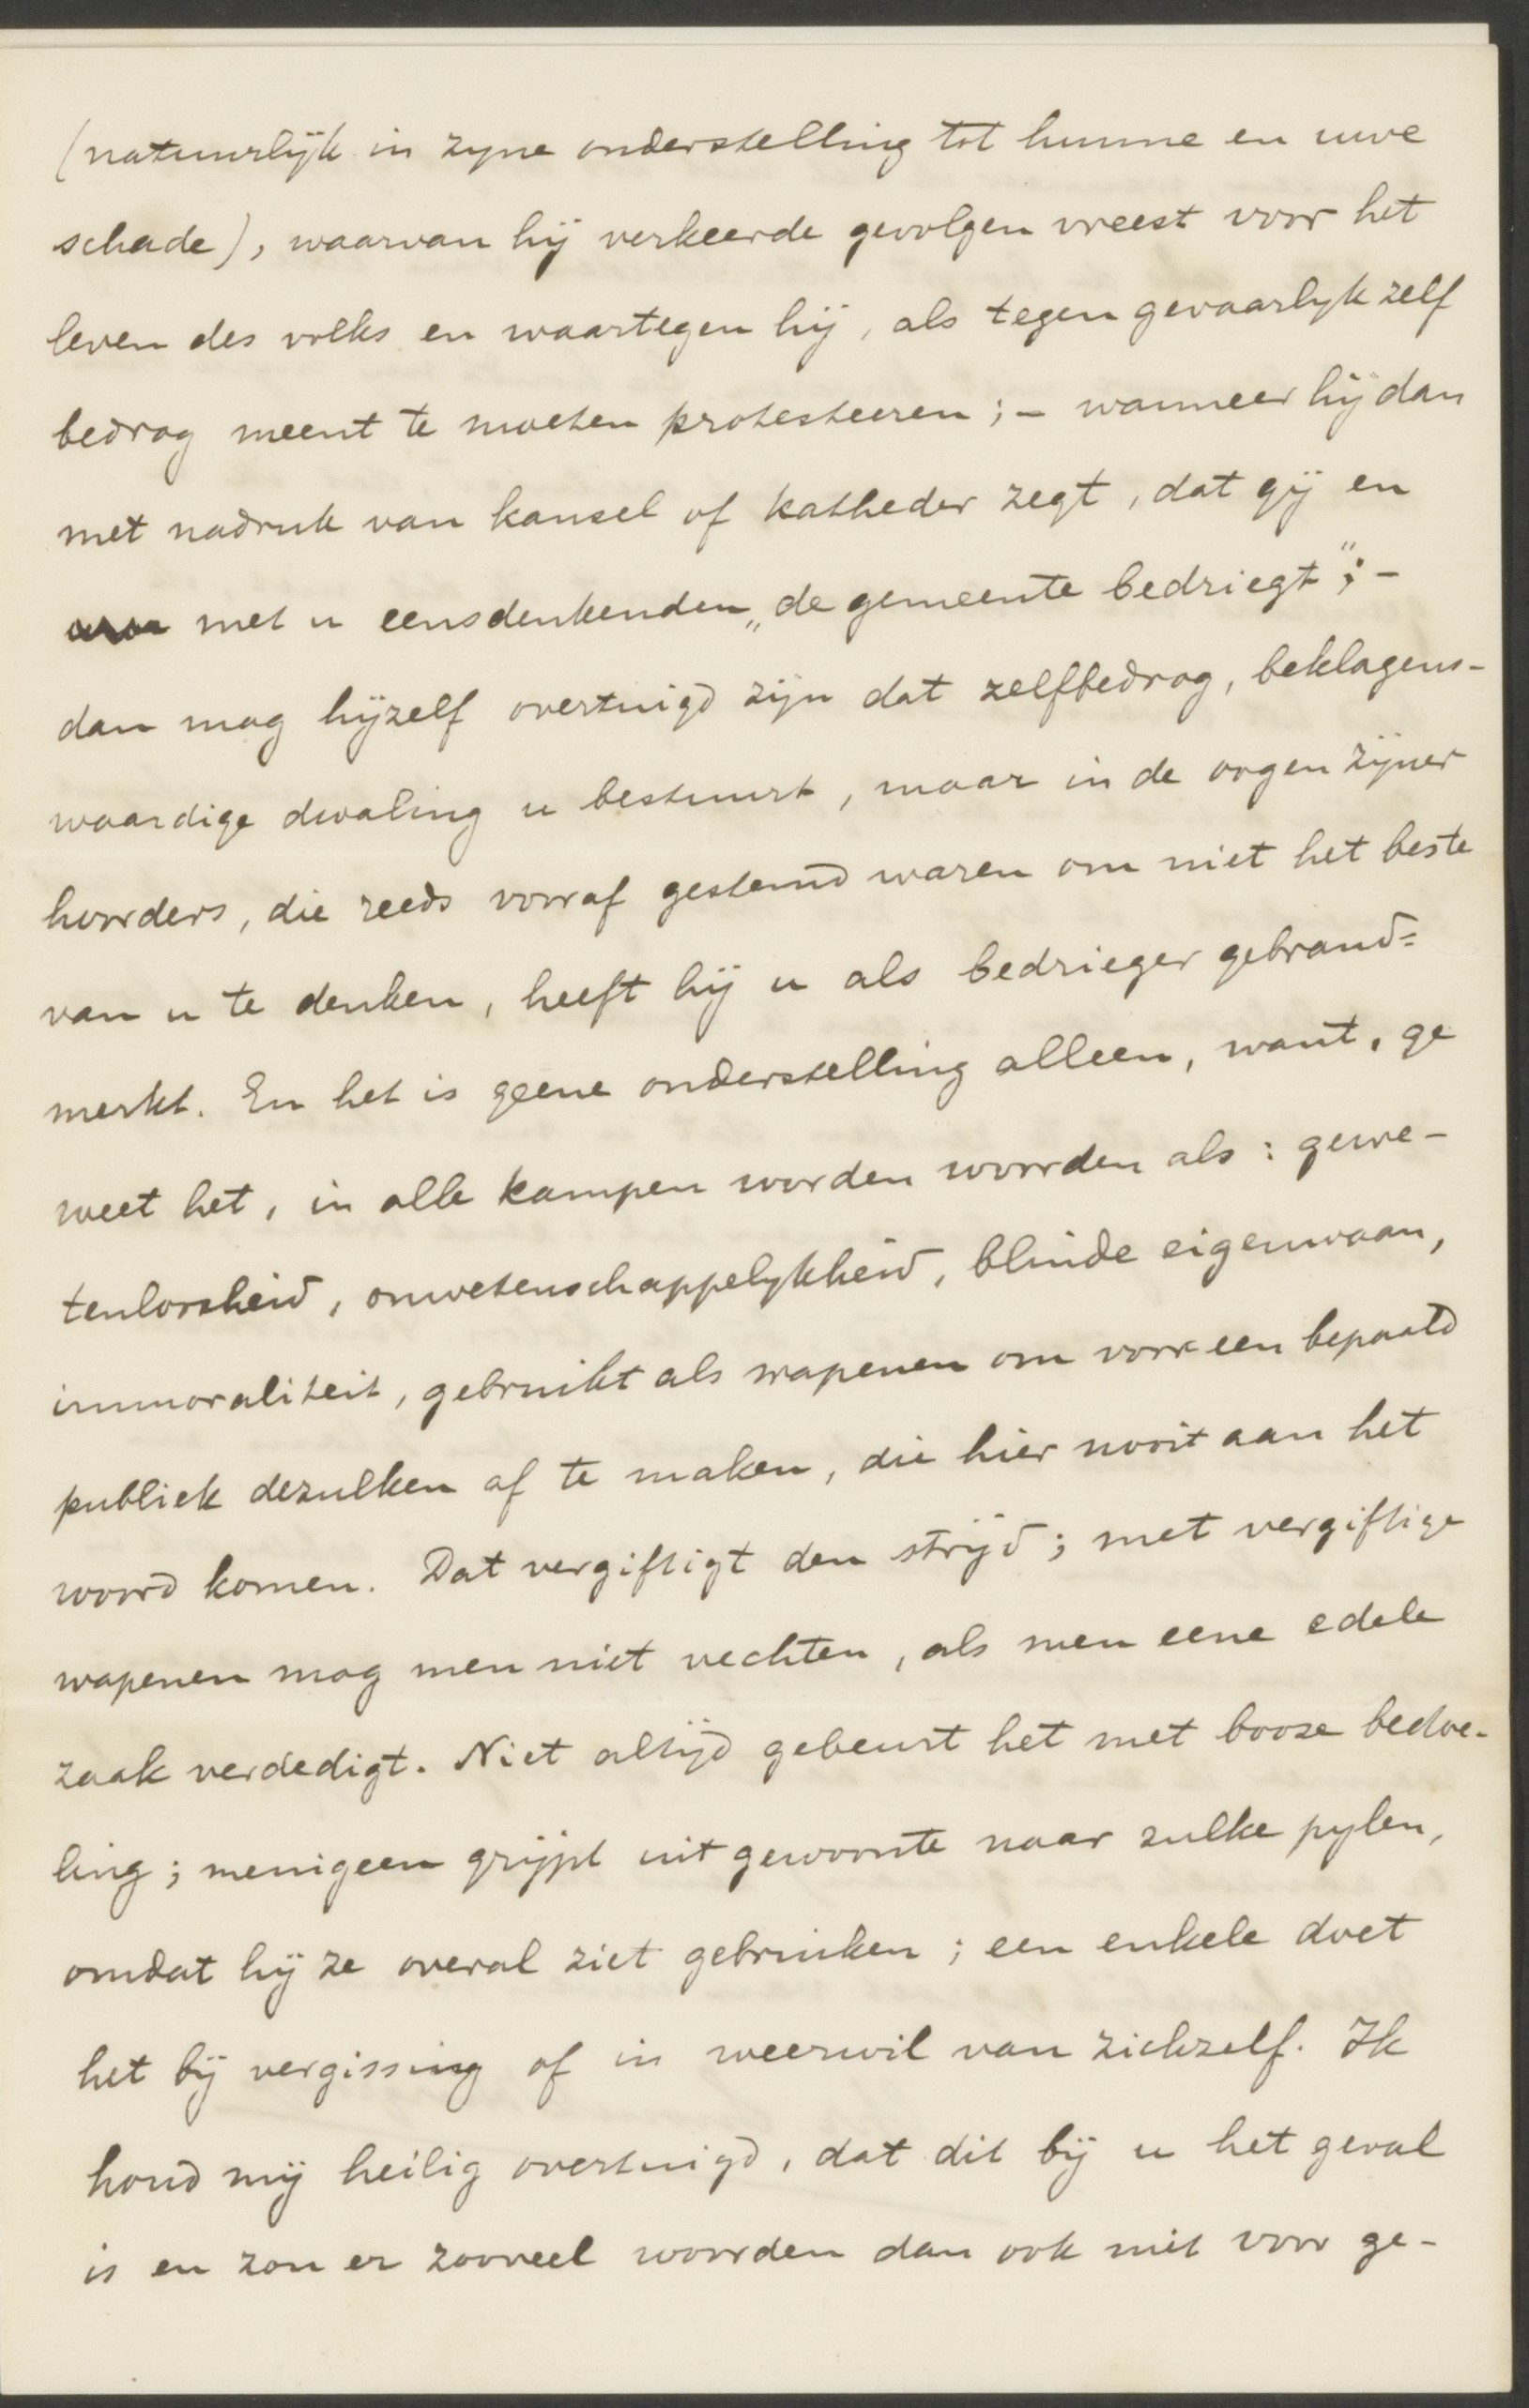 (natuurlijk in zyne onderstelling tot hunne en uwe
schade), waarvan hij verkeerde gevolgen vreest voor het
leven des volks en waartegen hij, als tegen gevaarlyk zelf
bedrog meent te moeten protesteeren; – wanneer hij dan
met nadruk van kansel of katheder zegt, dat gij en
met u eensdenkenden „de gemeente bedriegt"; –
dan mag hijzelf overtuigd zijn dat zelfbedrog, beklagens-
waardige dwaling u bestuurt, maar in de oogen zijner
hoorders, die reeds vooraf gestemd waren om niet het beste
van u te denken, heeft hij u als bedrieger gebrand=
merkt. En het is geene onderstelling alleen, want, ge
weet het, in alle kampen worden woorden als: gewe-
tenloosheid, onwetenschappelykheid, blinde eigenwaan,
immoraliteit, gebruikt als wapenen om voor een bepaald
publiek dezulken af te maken, die hier nooit aan het
woord komen. Dat vergiftigt den strijd; met vergiftige
wapenen mag men niet vechten, als men eene edele
zaak verdedigt. Niet altijd gebeurt het met booze bedoe-
ling; menigeen grijpt uit gewoonte naar zulke pylen,
omdat hij ze overal ziet gebruiken; een enkele doet
het bij vergissing of in weerwil van zichzelf. Ik
houd mij heilig overtuigd, dat dit bij u het geval
is en zou er zooveel woorden dan ook niet voor ge-